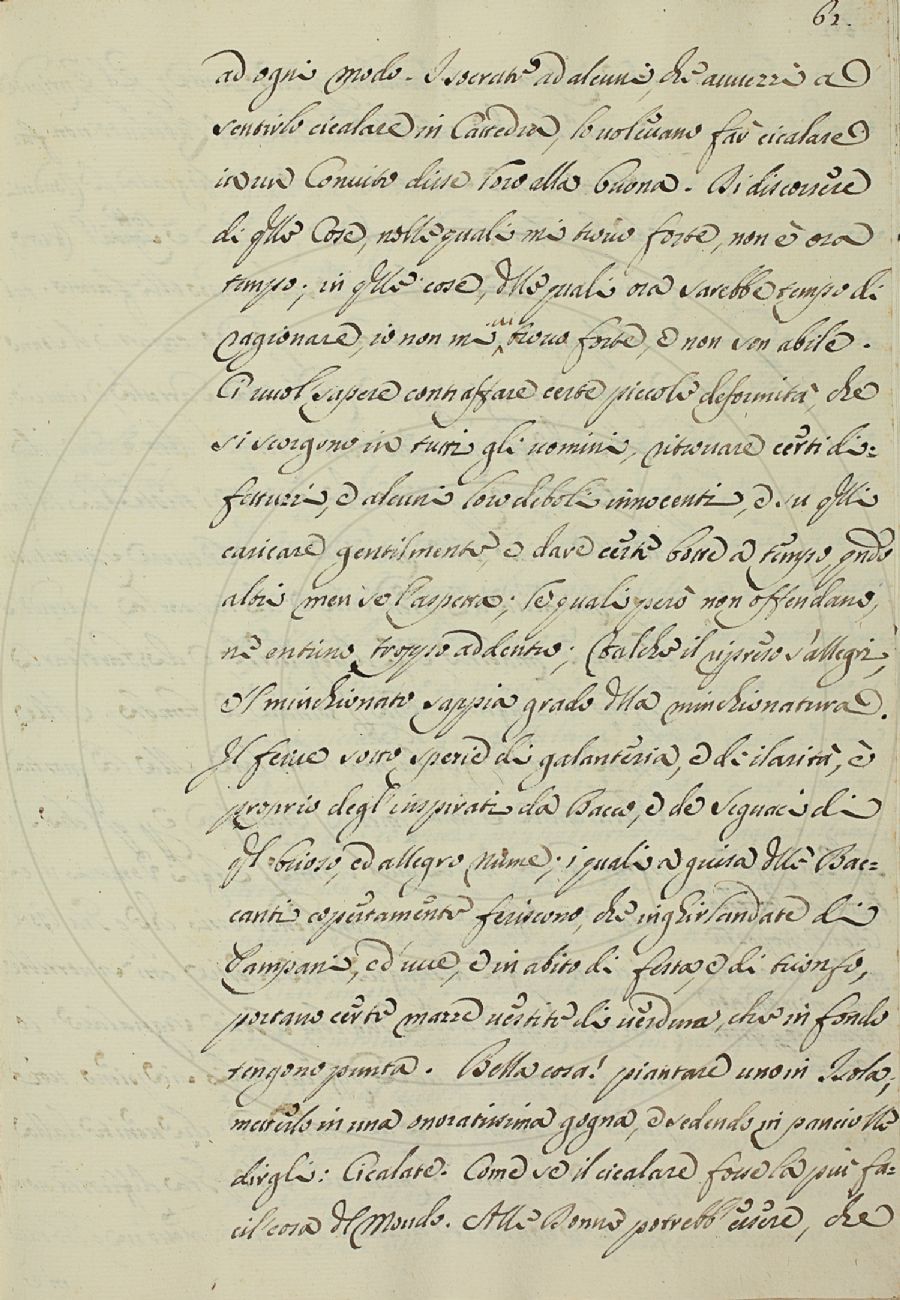 62.
ad ogni modo. Isocrate ad alcuni, che avvezzi a
sentirlo cicalare in Cattedra, lo volevano far cicalare
in un Convito disse loro alla buona. Di discorrere
di qlle Cose, nelle quali mi truovo forte, non è ora
tempo; in qlle cose, dlle quali ora sarebbe tempo di
ragionare, io non mi vi truovo forte, e non son abile.
Ci vuol sapere contraffare certe piccole deformità, che
si scorgono in tutti gli uomini, ritrovare certi di=
fettuzzi, e alcuni loro deboli innocenti, e su qlli
caricare gentilmente, e dare certe botte a tempo, qndo
altri men se l'aspetta; le quali però non offendano,
nè entrino troppo addentro; talchè il ripreso s'allegri,
e 'l minchionato sappia grado dlla minchionatura.
Il ferire sotto spezie di galanteria, e di ilarità, è
proprio degl'inspirati da Bacco, e de Seguaci di
ql brioso, ed allegro Nume; i quali a guisa dlle Bac=
canti copertamente feriscono, che inghirlandate di
Pampani, ed uve, e in abito di festa, e di trionfo,
portano certe mazze vestite di verdura, che in fondo
tengono punta. Bella cosa! piantare uno in Isola,
metterlo in una onoratissima gogna, e sedendo in panciolle
dirgli: Cicalate. Come se il cicalare fosse la più fa=
cil cosa dl Mondo. Alle Donne potrebb'essere, che